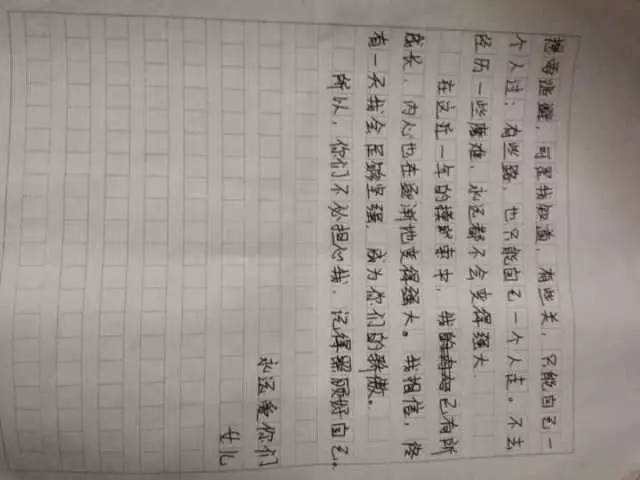 想要逃避，可是我知道，有些关，只能自己一
个人过；有些路，也只能自己一个人走。不去
经历一些磨难，永远都不会变得强大。
在这近一年的摸索中，我已有所
成长，内心也在逐渐地变得强大。我相信，终
有一天我会足够坚强，成为你们的骄傲。
所以，你们不必担心我，记得照顾好自己。
永远爱你们
女儿